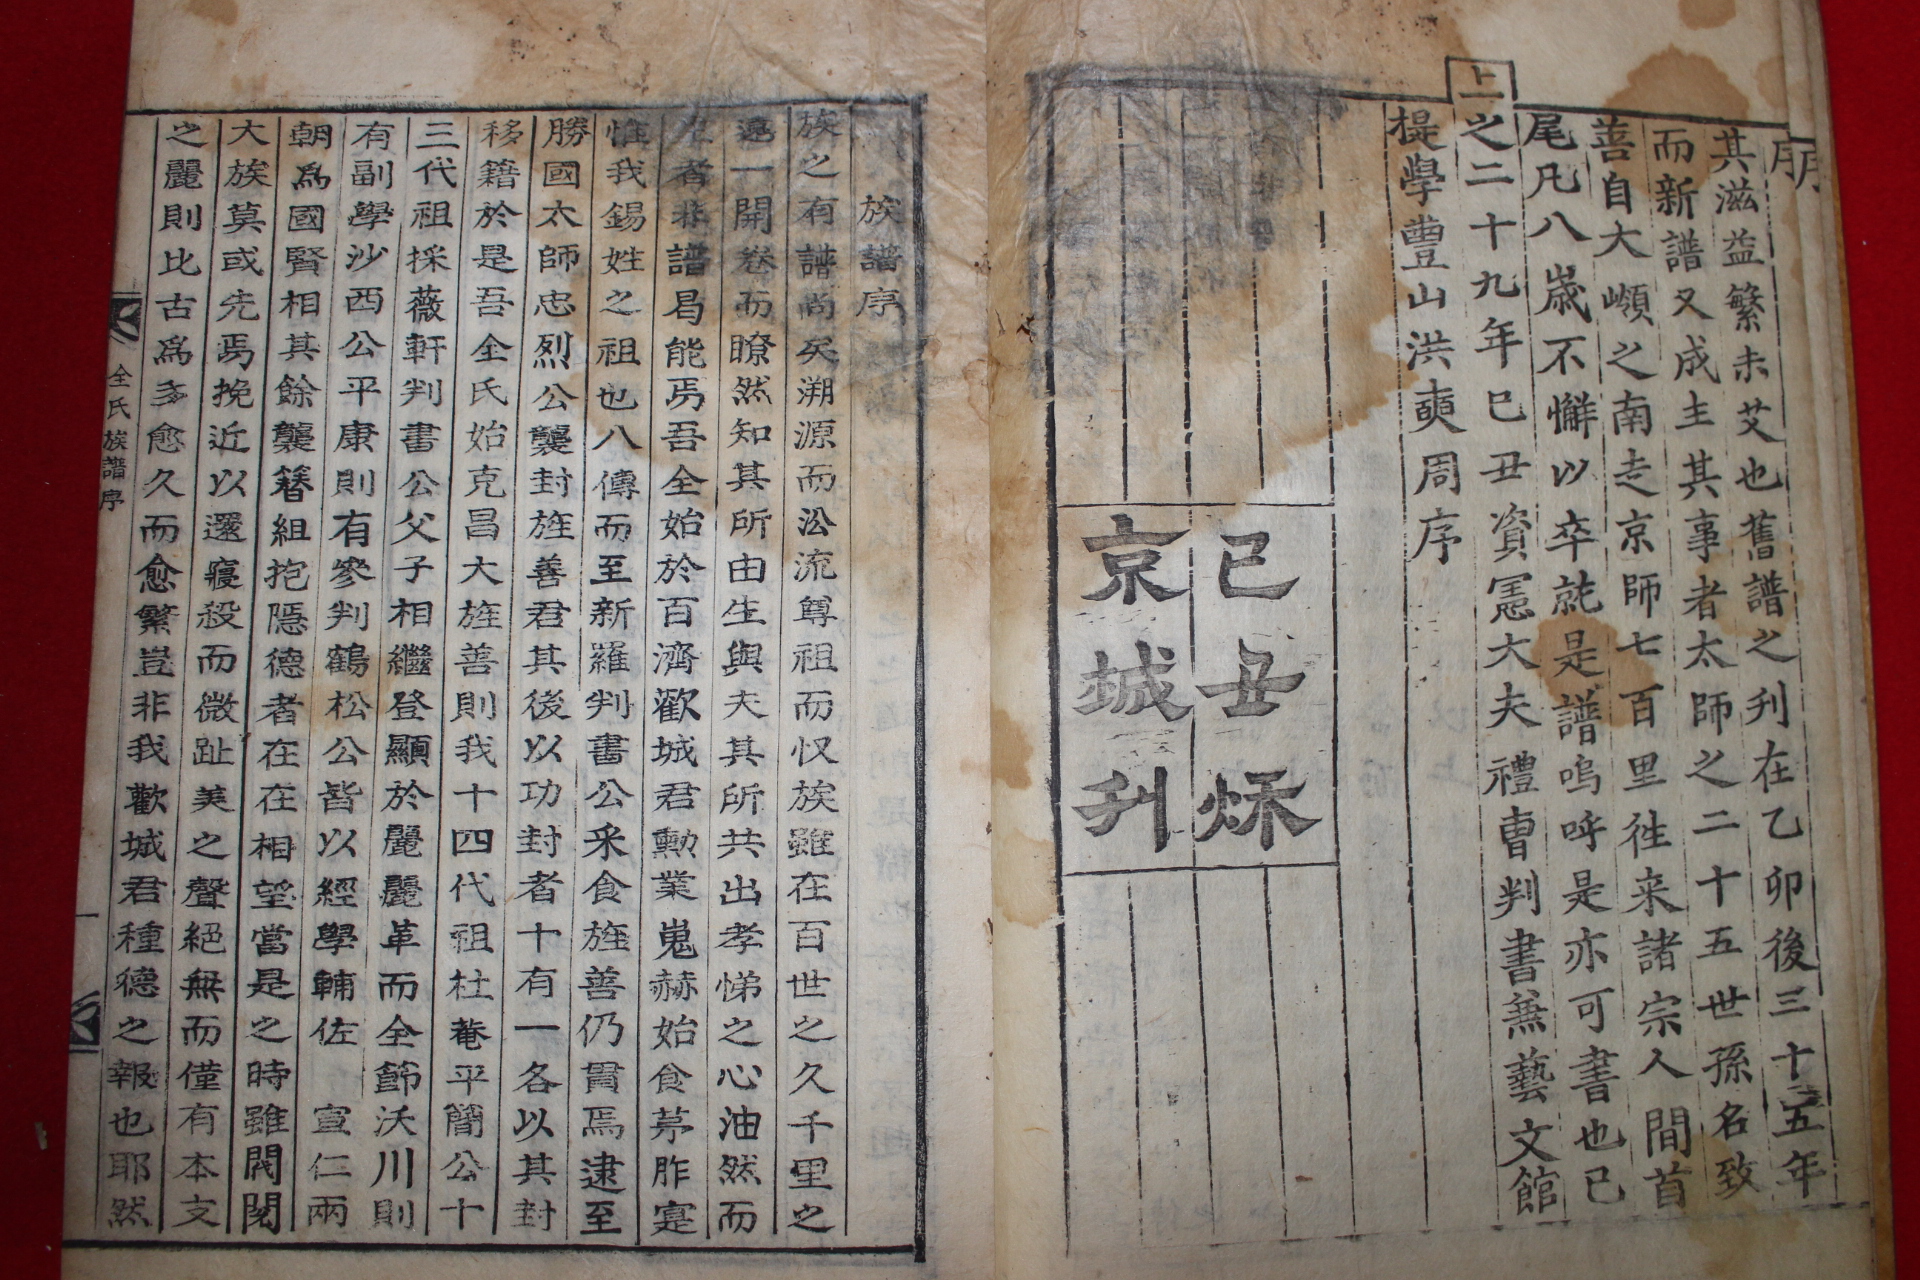 序
其滋益繁未艾也舊譜之刋在乙卯後三十五年
而新譜又成主其事者太師之二十五世孫名致
善自大嶺之南走京師七百里徃来諸宗人間首
尾凡八歲不懈以卒就是譜嗚呼是亦可書也已
上之二十九年己丑資憲大夫禮曹判書兼藝文館
提學豊山洪奭周序
己丑秌
京城刋
族譜序
族之有譜尚矣溯源而㳂流尊祖而収族雖在百世之久千里之
遠一開卷而瞭然知其所由生與夫其所共出孝悌之心油然而
生者非譜曷能焉吾全始於百濟歡城君勳業嵬赫始食茅胙寔
惟我錫姓之祖也八傳而至新羅判書公釆食旌善仍貫焉逮至
勝國太師忠烈公襲封旌善君其後以功封者十有一各以其封
移籍於是吾全氏始克昌大旌善則我十四代祖杜菴平簡公十
三代祖採薇軒判書公父子相繼登顯於麗麗革而全節沃川則
有副學沙西公平康則有參判鶴松公皆以經學輔佐 宣仁兩
朝爲國賢相其餘襲簪組抱隱德者在在相望當是之時雖閥閱
大族莫或先焉挽近以還寢殺而微趾美之聲絕無而僅有本支
之麗則比古爲多愈久而愈繁豈非我歡城君種德之報也耶然
全氏族譜序
一